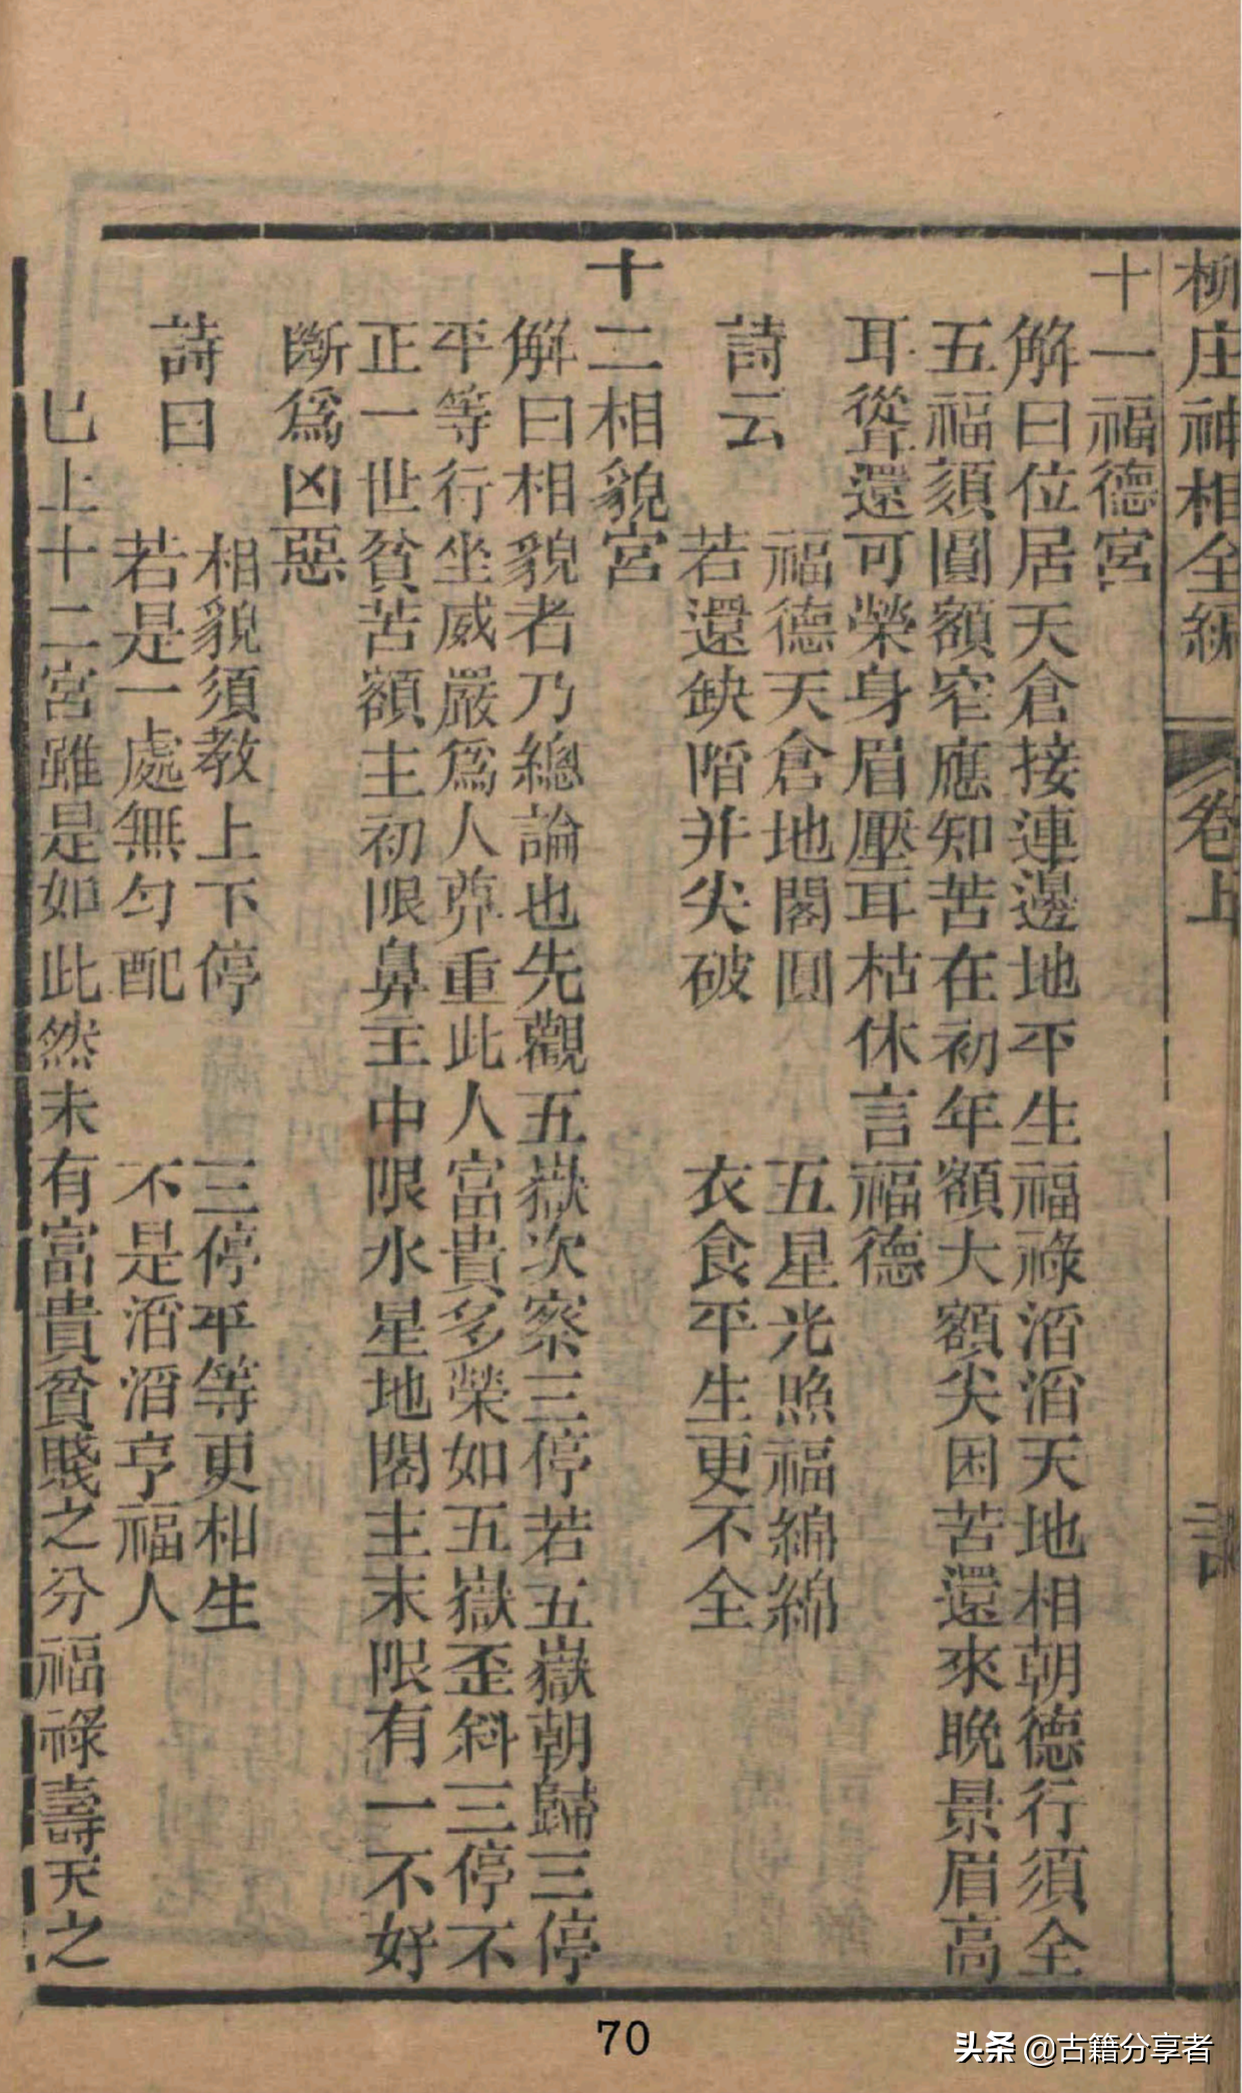 柳庄神相全編 卷上
十一福德宮
解曰位居天倉接連邊地平生福祿滔滔天地相朝德行須全
五福須圓額窄應知苦在初年額大額尖困苦還來晚景眉高
耳聳還可榮身眉壓耳枯休言福德
詩云
福德天倉地閣圓 五星光照福綿綿
若還缺陷并尖破 衣食平生更不全
十二相貌宮
解曰相貌者乃總論也先觀五嶽次察三停若五嶽朝歸三停
平等行坐威嚴爲人莽重此人富貴多榮如五嶽歪斜三停不
正一世貧苦額主初限鼻主中限水星地閣主末限有一不好
斷爲凶惡
詩曰
相貌須教上下停 三停平等更相生
若是一處無勻配 不是滔滔亨福人
已上十二宮雖是如此然未有富貴貧賤之分福祿壽夭之
70
头条 @古籍分享者